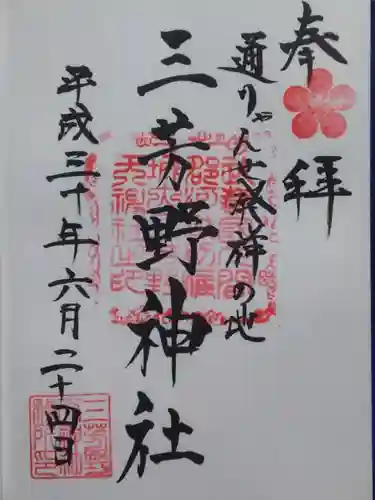 奉拝
通りゃんせ発祥の地
三芳野神社
平成三十年六月二十四日